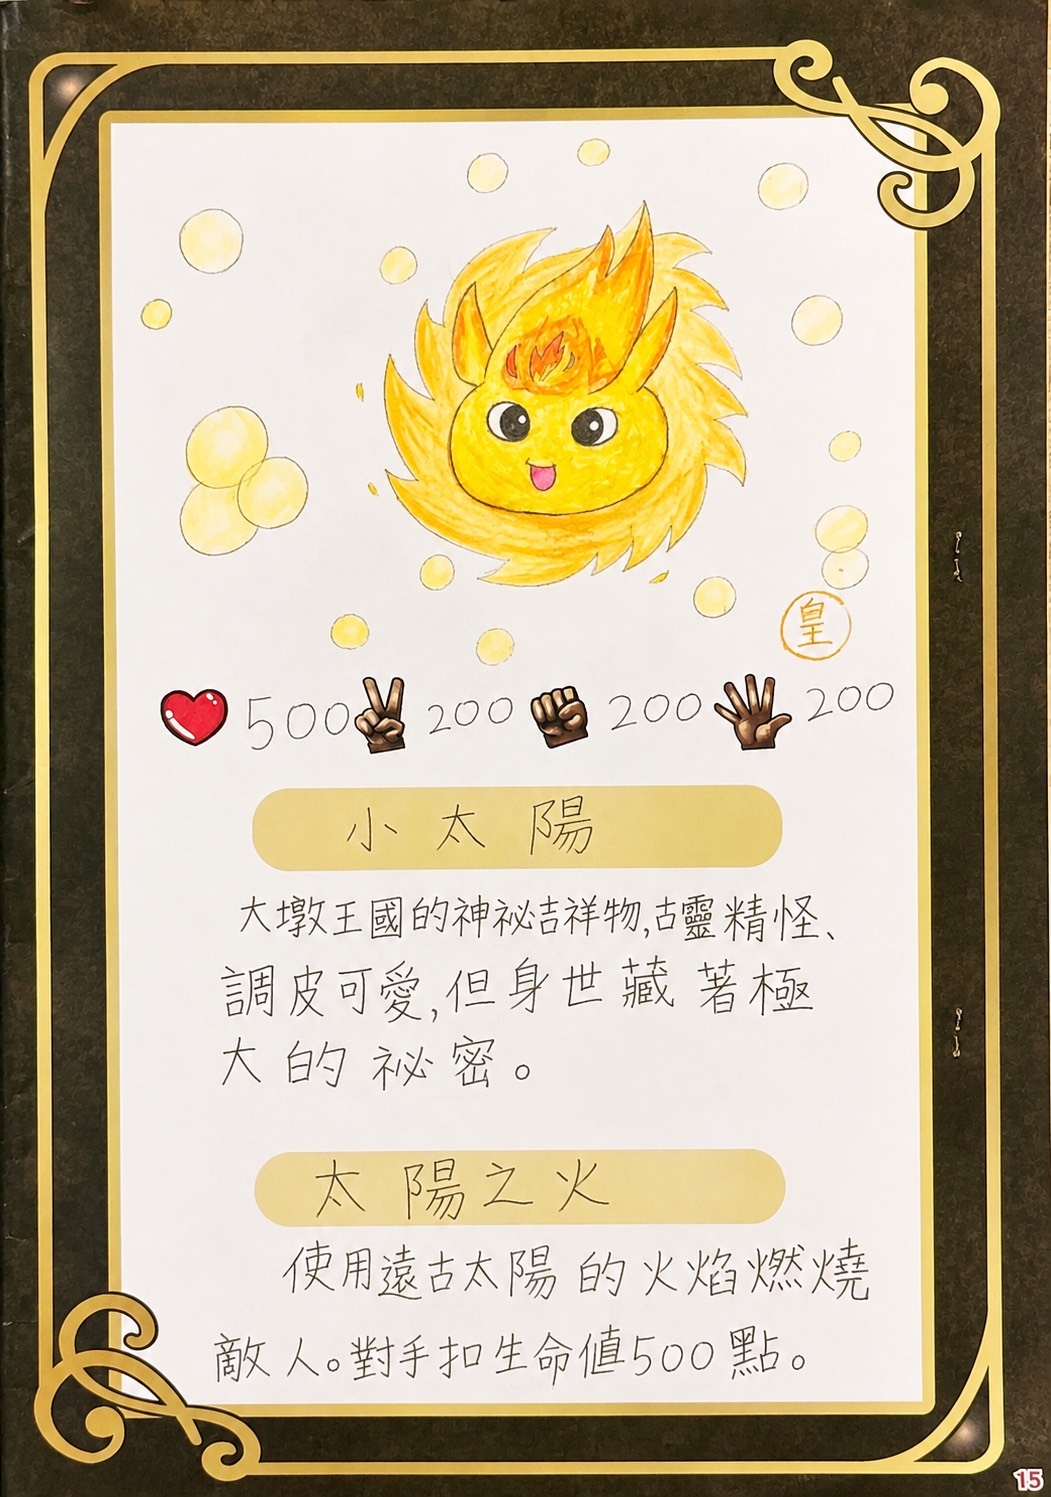 皇
500 200 200 200
小太陽
大墩王國的神祕吉祥物,古靈精怪、
調皮可愛,但身世藏著極
大的祕密。
太陽之火
使用遠古太陽的火焰燃燒
敵人。對手扣生命值500點。
15